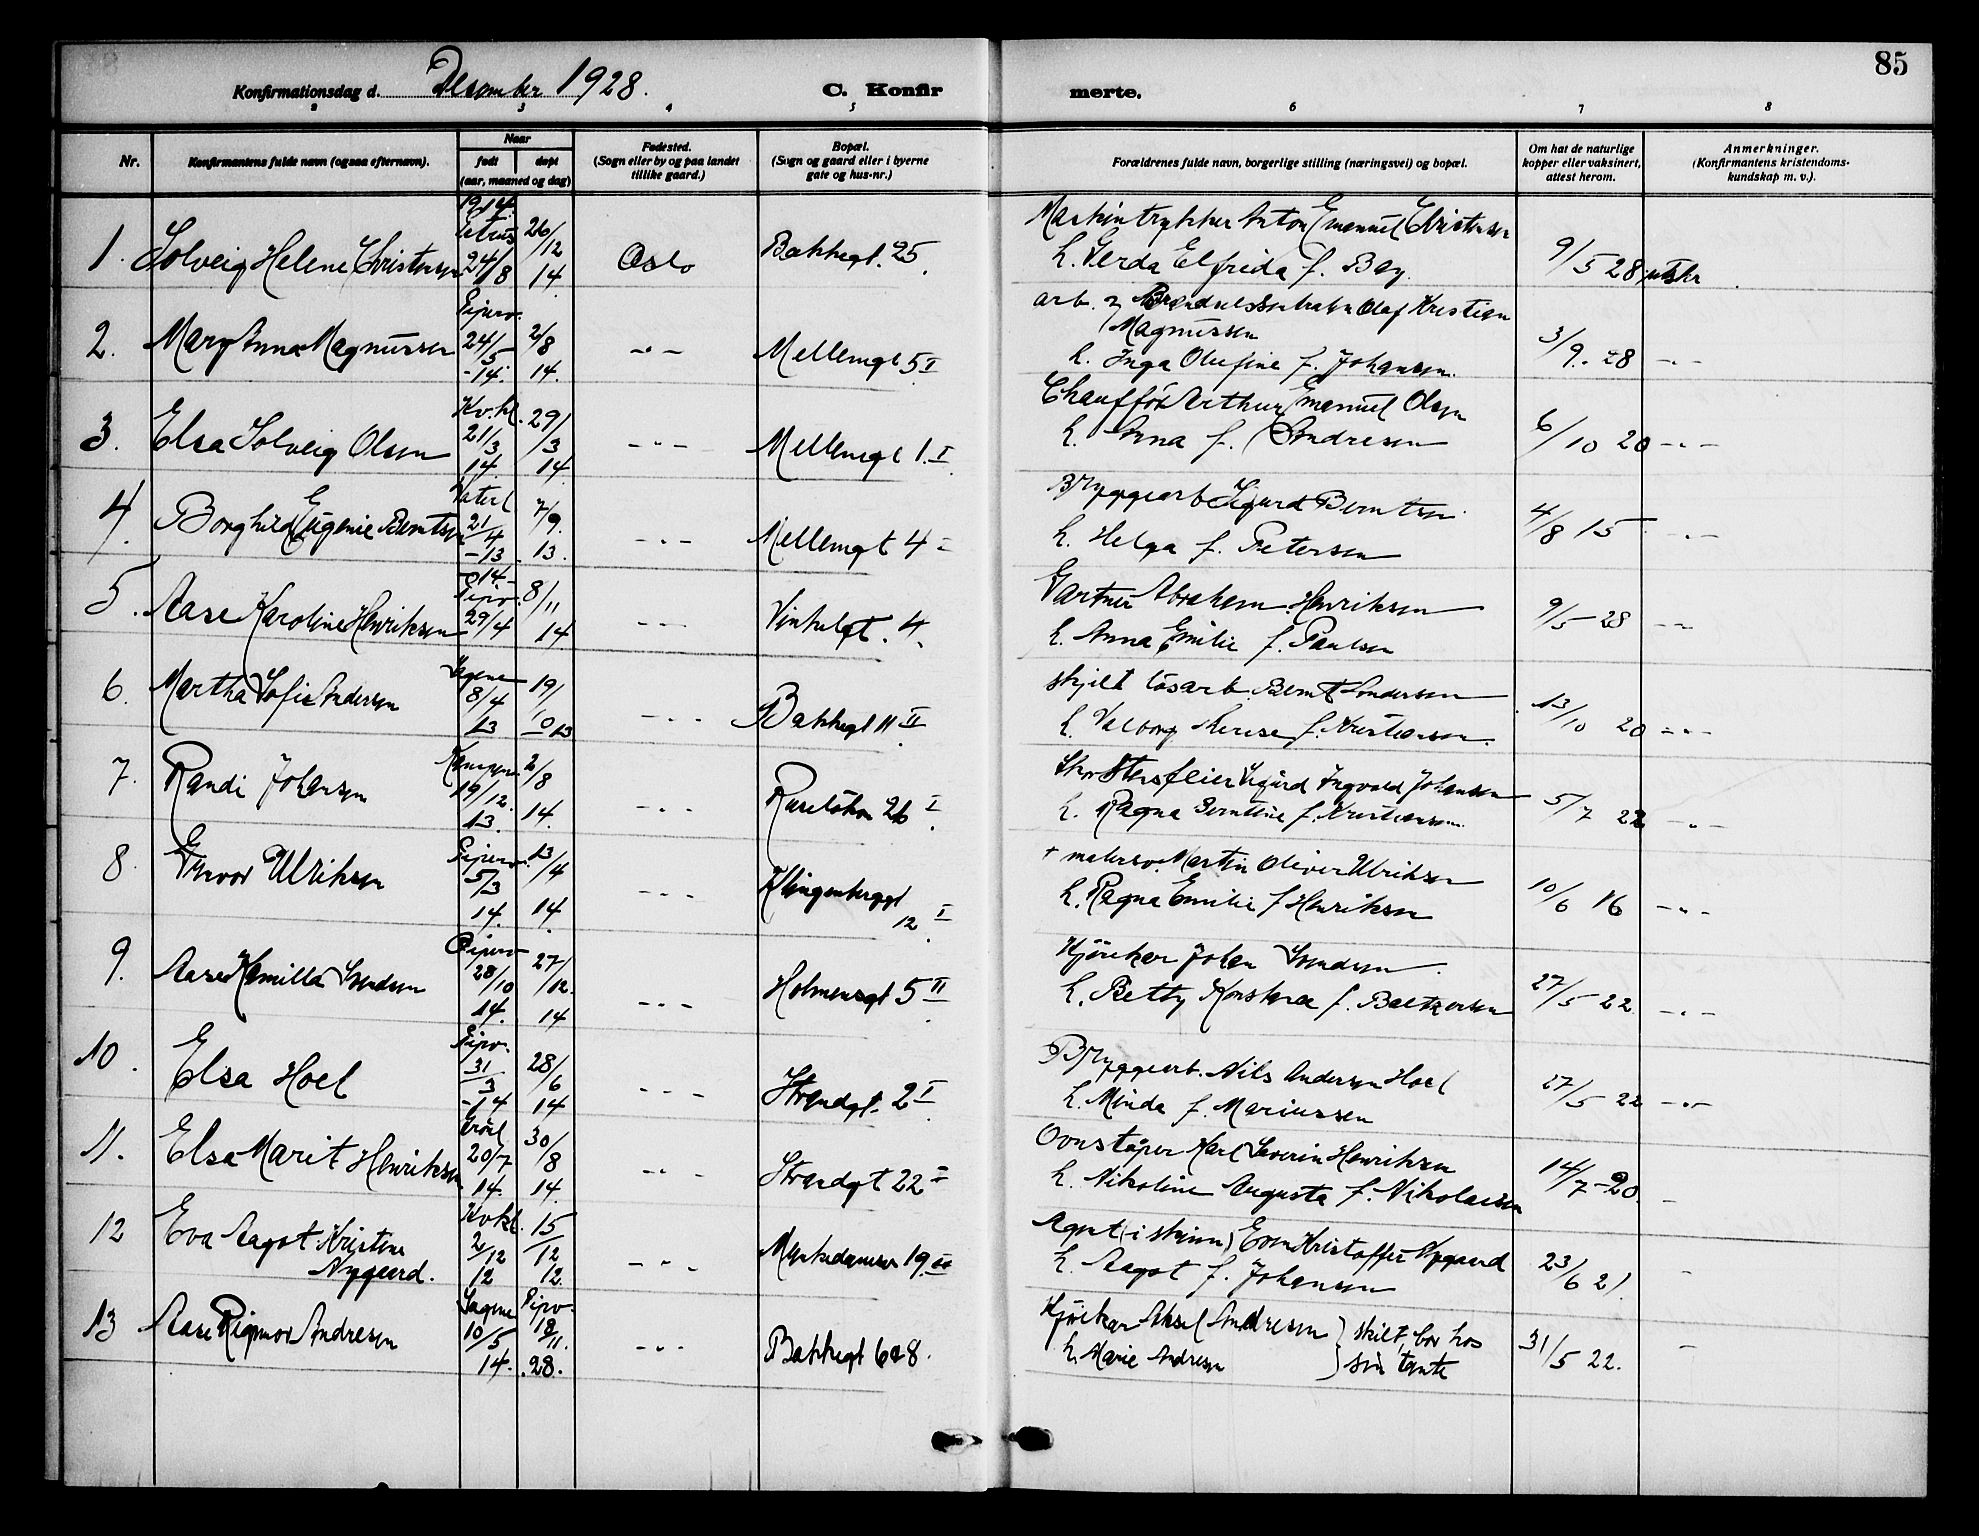 85
Konfirmationsdag d. Desember 1928.
C. Konfirmerte.
2 3 4 5 6 7 8
Nr.
Konfirmantens fulde navn (ogsaa efternavn).
Naar
født
døpt
(aar, maaned og dag)
Fødested.
(Sogn eller by og paa landet
tillike gaard.)
Bopæl.
(Sogn og gaard eller i byerne
gate og hus-nr.)
Forældrenes fulde navn, borgerlige stilling (næringsvei) og bopæl.
Om hat de naturlige
kopper eller vaksinert,
attest herom.
Anmerkninger.
(Konfirmantens kristendoms-
kundskap m. v.).
1. Solveig Helene Christensen
1914.
24/8
26/12 14
Oslo
Bakkegt. 25.
Maskintrykker Anton Emanuel Christensen
h. Gerda Elfrida f. Bay.
9/5 28
2. Mary Anna Magnussen
Pipero.
24/5 -14.
2/8 14.
-"-
Mellemgt 5 I
arb. Olaf Kristian
Magnussen
h. Inga Olufine f. Johansen.
3/9. 28 -"-
3. Elsa Solveig Olsen
21/3 14
29/3 14
-"-
Mellemgt 1. I
Chauffør Arthur Emanuel Olsen
h. Anna f. Andresen
6/10 20 -"-
4. Borghild Eugenie Berntsen
Vaterl
21/4 -13
7/9. 13.
-"-
Mellemgt 4
Bryggearb Sigurd Berntsen
h. Helga f. Petersen
4/8 15 -"-
5. Aase Karoline Henriksen
-14-
29/4
8/11 14
-"-
Vinkelgt. 4.
Gartner Abraham Henriksen
h. Anna Emilie f. Paulsen
9/5 28 -"-
6. Martha Sofie Andersen
Sagene
8/4 13
19/10 13
-"-
Bakkegt 11 II
skjilt løsarb. Bernt Andersen
h. Valborg Therese f. Kristiansen.
13/10 20 -"-
7. Randi Johansen
Kampen
19/12. 13.
2/8 14.
-"-
Ruseløkn 26 I
Skorstensfeier Sigurd Ingvald Johansen
h. Ragna Berntine f. Kristiansen.
5/7 22 -"-
8. Gunvor Ulriksen
Pipero.
5/3 14.
13/4 14.
-"-
Klingenberggt
12 I
+ malersv. Martin Oliver Ulriksen
h. Ragna Emilie f Henriksen
10/6 16 -"-
9. Aase Kamilla Svendsen
Pipero
28/10 14.
27/12. 14
-"-
Holmensgt 5 II
Kjørekar Johan Svendsen.
h. Betty Konstanse f. Baltzersen
27/5 22. -"-
10. Elsa Hoel
Pipv.
31/3 -14
28/6 14
-"-
Strandgt. 2 I
Bryggearb. Nils Andersen Hoel
h. Minda f. Mariussen
27/5 22 -"-
11. Elsa Marit Henriksen
20/7 14.
30/8 14.
-"-
Strandgt 22 I
Ovnstøper Karl Severin Henriksen
h. Nikoline Augusta f. Nikolaisen
14/7 -20. -
12 Eva Aagot Kristine
Nygaard.
2/12 12
15/12 12.
-"-
Munkedamsv 19 III
Agent (i skinn) Even Kristoffer Nygaard
h. Aagot f. Johansen
23/6 21. -
13 Aase Rigmor Andresen
Sagene
10/5 14.
Pipv.
18/11. 28.
-"-
Bakkegt 6 8.
Kjørekar Aksel Andresen
h. Marie Andresen
skilt, bor hos
sin tante
31/5 22. -